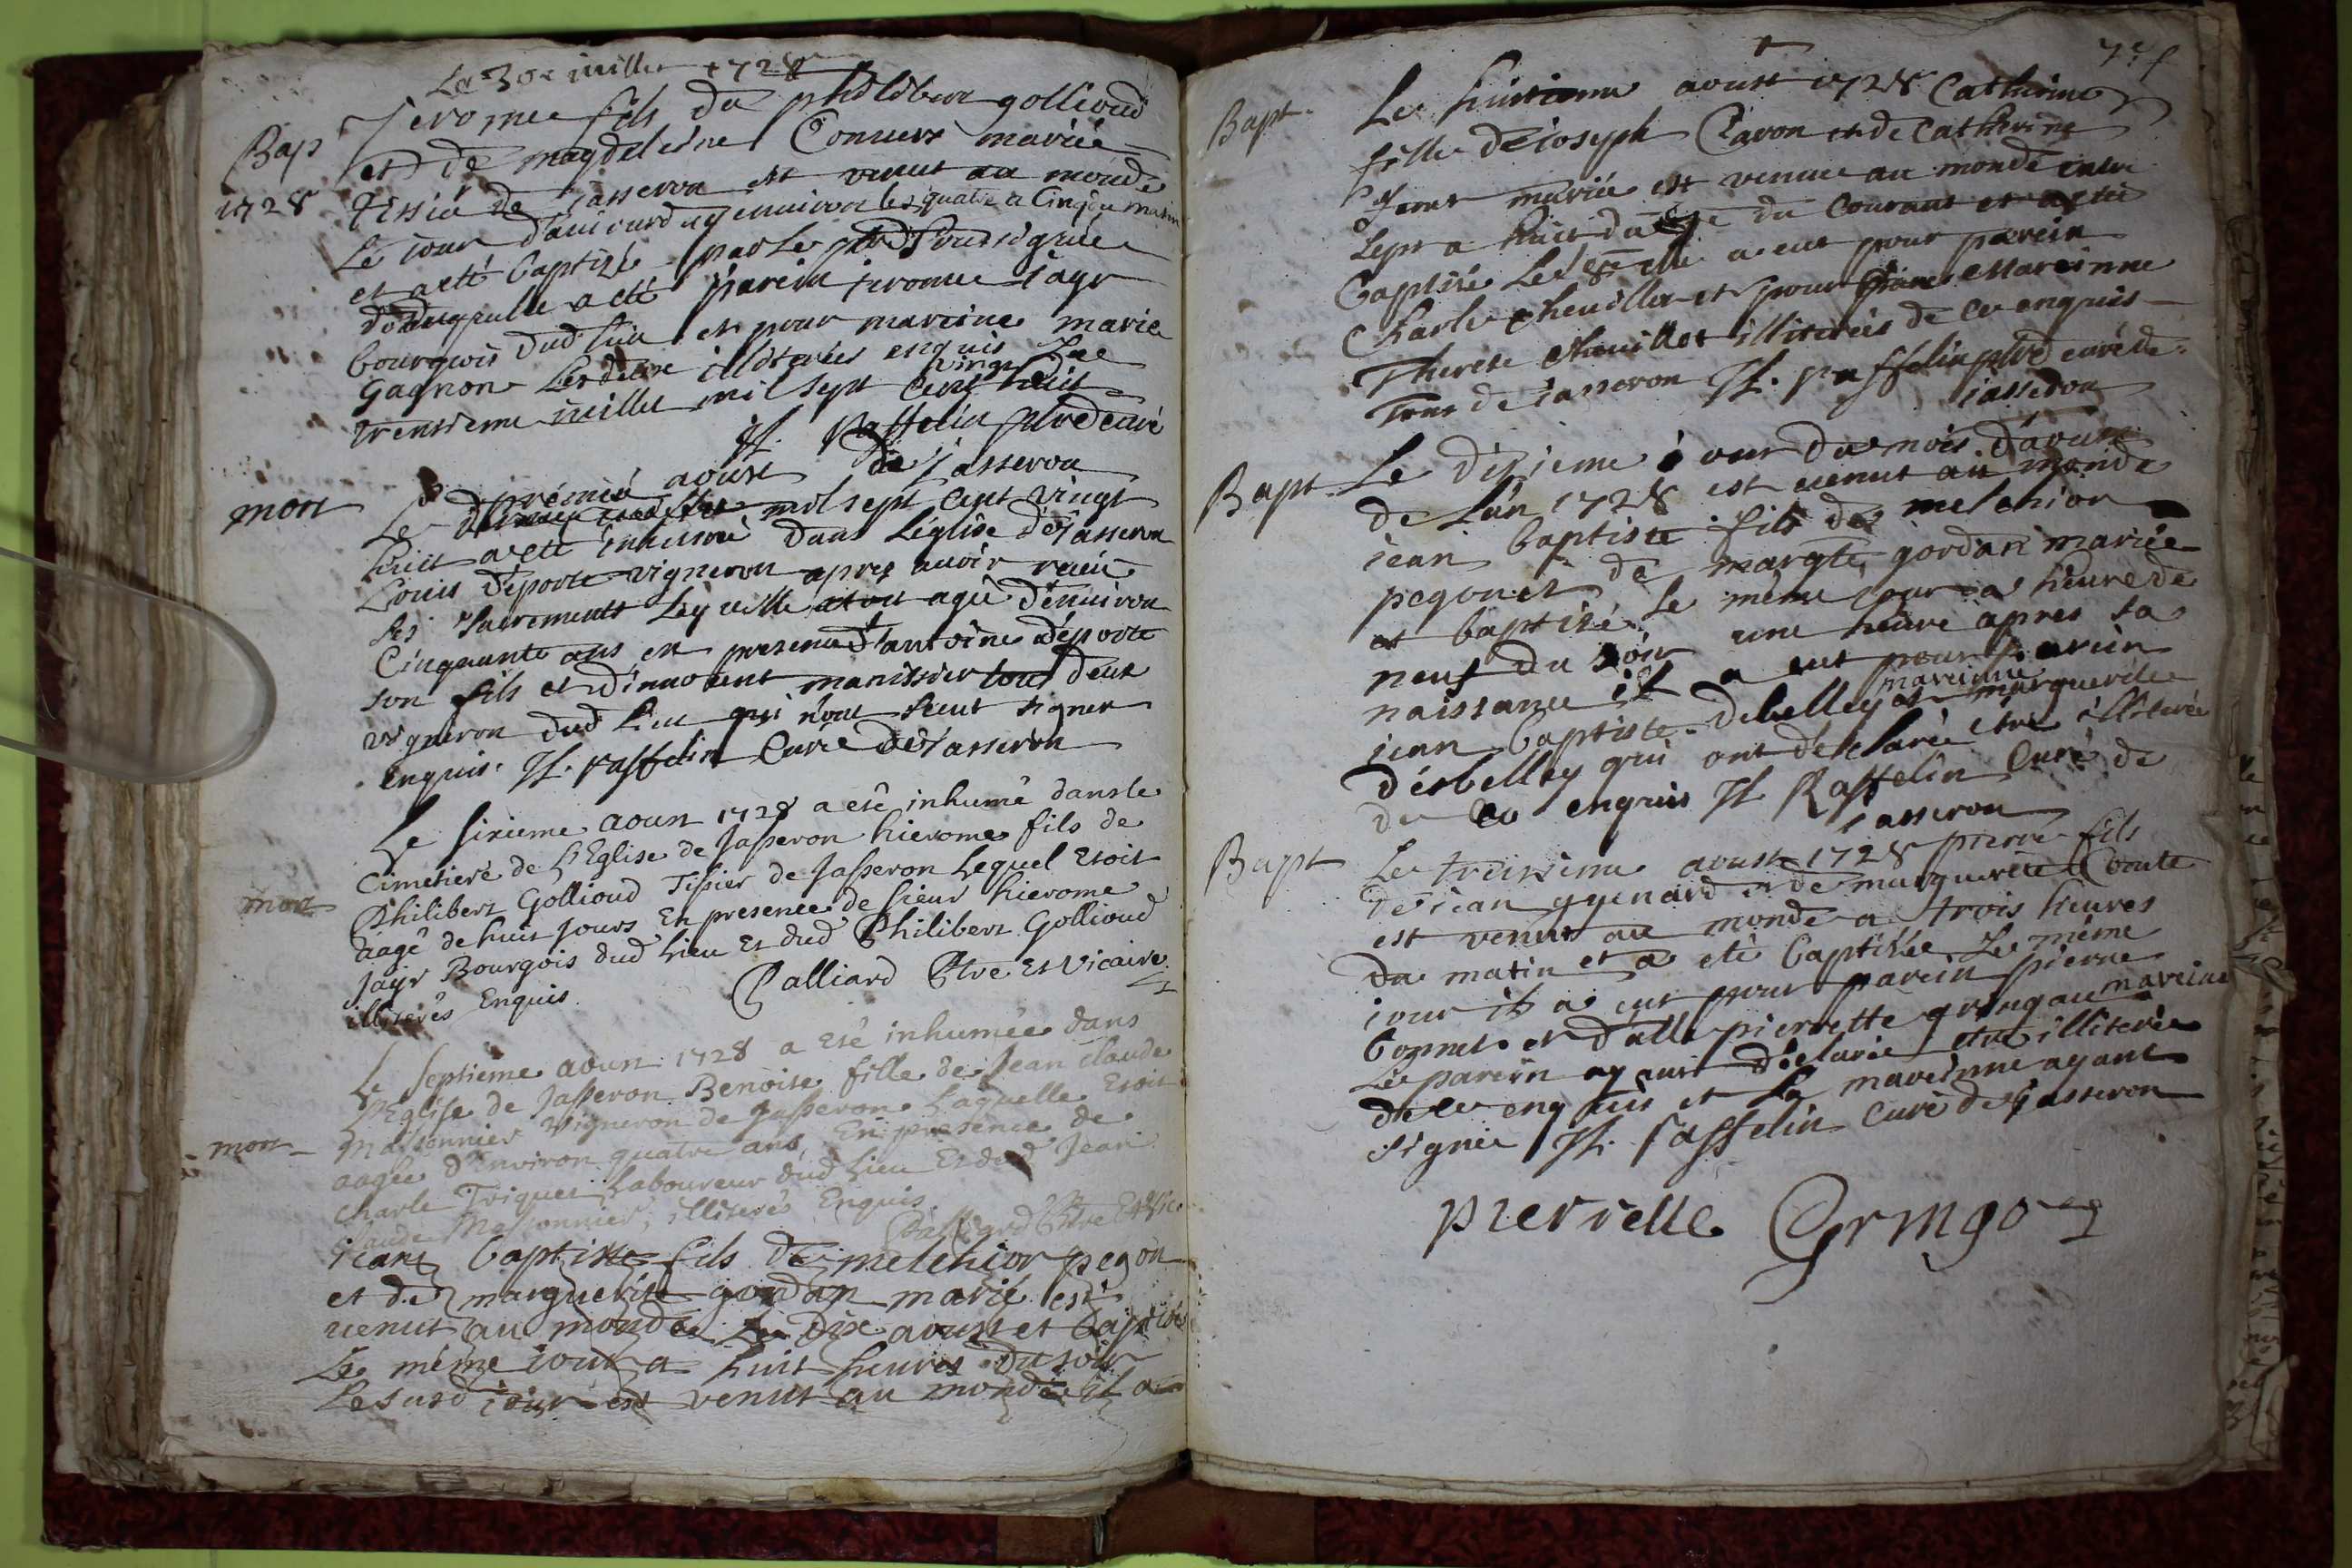 Le 30e iuillet 1728
Bap
1728
Jerome fils de philibert gollioud
et de magdeleine Convers mariée
tissié de Jasseron est venut au monde
Le iour d'auiourduy enuiron les quatre a Cinq du matin
et a eté baptizé par le ptre soussigné
a eté parein jerome iayr
bourgois dud lieu et pour mareine marie
Gagnon Les deux illiterées enquis Le
trentieme iuillet mil sept Cent vingt huit
H. Raffelin ptre curé
de iasseron
mort
Le premié aoust mil sept Cent vingt
huit a eté inhumé dans L'église de Jasseron
Louis déporte vigneron apres auoir receu
ses sacrements Leq uelle etoit agé d'enuiron
Cinquante ans en presence d'antoine déporte
son fils et d'innocent manissier tous deux
vigneron dud Lieu qui n'ont sceut signer
enquis. H. raffelin Curé de Jasseron
mort
Le sixieme aoust 1728 a eté inhumé dans le
Cimetieré de L'Eglise de Jasseron hierome fils de
Philibert Gollioud Tissier de Jasseron Lequel Etoit
aagé de huit jours En presence de sieur hierome
Jayr Bourgois dud Lieu Et dud Philibert Gollioud
illiterés Enquis. Palliard Ptre Et Vicaire
mort
Le septieme aoust 1728 a eté inhumée dans
L'Eglise de Jasseron Benoite fille de Jean claude
Massonnier Vigneron de Jasseron Laquelle Etoit
aagée d'Environ quatre ans, En presence de
Charle Triquet Laboureur dud Lieu Et dud Jean
claude Massonnier, illiterés Enquis
Palliard Ptre Et Vic.
iean baptiste fils de melchior pegon
et de marguerite gordan marié est
venut au monde Le dix aoust et baptizé
Le même iour a huit heures du soir
Le susd iour est venut au monde il a
Bapt.
Le huitieme aoust 1728 Catherine
fille de ioseph Cavon et de Catherine
mariée est venue au monde entre
sept a huit du courant et a eté
baptisé Le 8e elle a eut pour parein
Charle cheuillet et pour mareinne
Therese cheuillet illiterées de ce enquis
Tous de iasseron H. raffelin ptre curé de
iasseron
Bapt.
Le dixieme iour du mois d'aoust
de L'an 1728 est venut au monde
iean baptiste fils de melchior
pegon et de margte gordan mariée
et baptizé Le même iour a heure de
neuf du soir une heure apres sa
naissance il a eut pour parein
iean baptiste debelley et mareinne marguerite
desbelley qui ont déclarée etre illiterée
de ce enquis H. Raffelin Curé de
iasseron
Bapt
Le treizieme aoust 1728 pierre fils
de iean guyenard et de marguerite Conte
est venut au monde a trois heures
du matin et a eté baptizée Le même
iour il a eut pour parein pierre
bonnet et dalle pierrette gringau mareine
Le parein ayant déclarée etre illiterée
de ce enquis et La mareinne ayant
signée H. raffelin Curé de Jasseron
pierrette Gringo